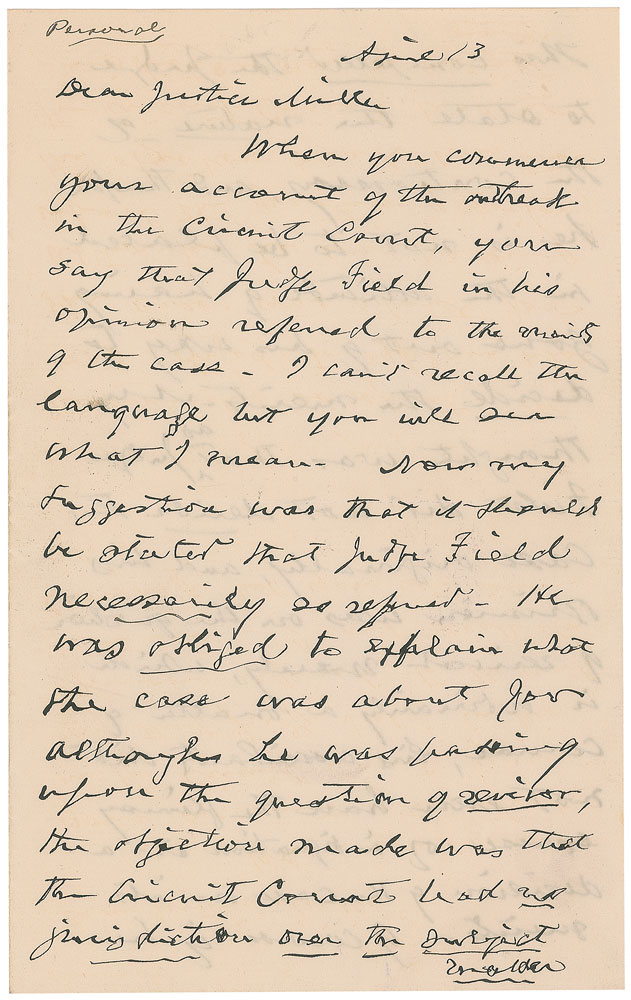 Personal
April 13
Dear Justice Miller
When you commence
your account of the outbreak
in the Circuit Court, you
say that Judge Field in his
opinion referred to the merits
of the case - I can't recall the
language but you will see
what I mean - Now my
suggestion was that it should
be stated that Judge Field
necessarily so referred - He
was obliged to explain what
the case was about for
although he was passing
upon the question of revivor,
the objection made was that
the Circuit Court had no
jurisdiction over the subject
matter